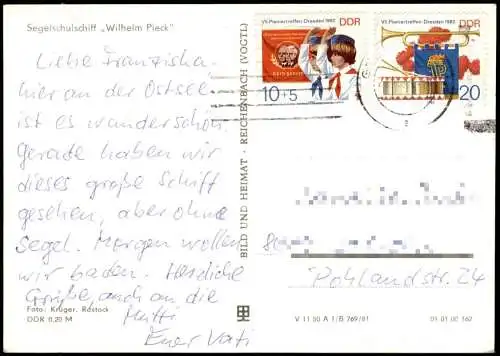 Segelschulschiff „Wilhelm Pieck"
Liebe Franziska.
hier an der Ostsee
ist es wunderschön.
Gerade haben wir
dieses große Schiff
gesehen, aber ohne
Segel. Morgen wollen
wir baden. Herzliche
Grüße, auch an die
Mutti
Euer Vati
Foto: Krüger, Rostock
DDR 0,20 M
BILD UND HEIMAT · REICHENBACH (VOGTL)
VII. Pioniertreffen · Dresden 1982 DDR
10+5
VII. Pioniertreffen · Dresden 1982 DDR
20
Pohlandstr. 24
V 11 50 A 1/B 769/81
01 01 00 162